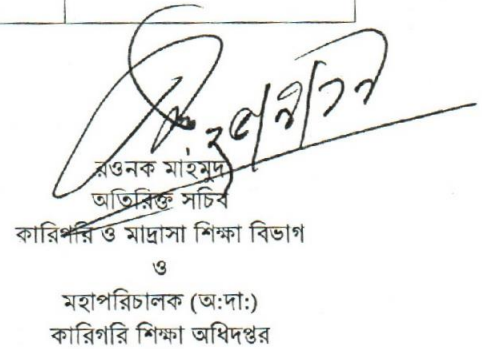 রওনক মাহমুদ
অতিরিক্ত সচিব
কারিগরি ও মাদ্রাসা শিক্ষা বিভাগ
ও
মহাপরিচালক (অ:দা:)
কারিগরি শিক্ষা অধিদপ্তর